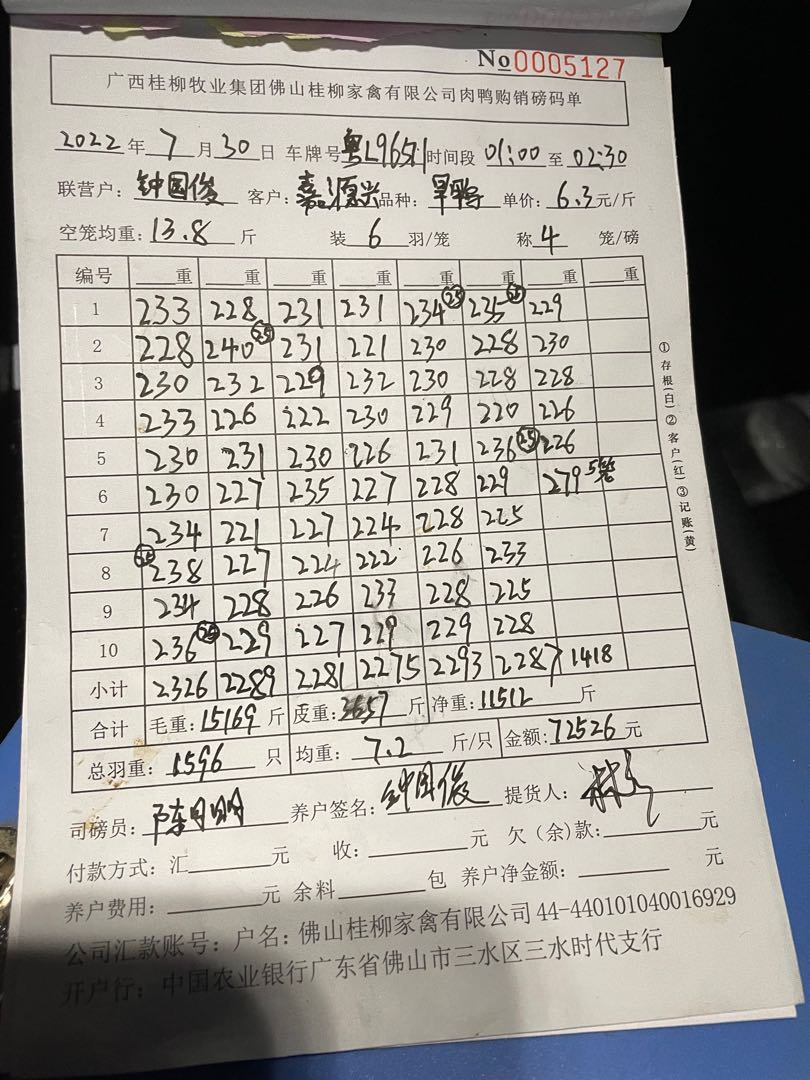 No 0005127
广西桂柳牧业集团佛山桂柳家禽有限公司肉鸭购销磅码单
2022年 7月 30日 车牌号 粤L9651 时间段 01:00 至 02:30
联营户: 钟国俊 客户: 嘉源兴 品种: 单价: 6.3元/斤
空笼均重: 13.8 斤 装 6 羽/笼 称 4 笼/磅
编号 重 重 重 重 重 重 重 重
1 233 228 231 231 234 25 235 25 229
2 228 240 25 231 221 230 228 230
3 230 232 229 232 230 228 228
4 233 226 222 230 229 220 226
5 230 231 230 226 231 236 25 226
6 230 227 235 227 228 229 279 5笼
7 234 221 227 224 228 225
8 238 227 224 222 226 233
9 234 228 226 233 228 225
10 236 25 229 227 229 229 228
小计 2326 2289 2281 2275 2293 2287 1418
合计 毛重: 15169 斤 皮重: 3657 斤 净重: 11512 斤
总羽重: 1596 只 均重: 7.2 斤/只 金额: 72526 元
司磅员: 陈明明 养户签名: 钟国俊 提货人:
付款方式: 汇 元 收: 元 欠(余)款: 元
养户费用: 元 余料 包 养户净金额: 元
公司汇款账号: 户名: 佛山桂柳家禽有限公司 44-440101040016929
开户行: 中国农业银行广东省佛山市三水区三水时代支行
①存根(白)②客户(红)③记账(黄)